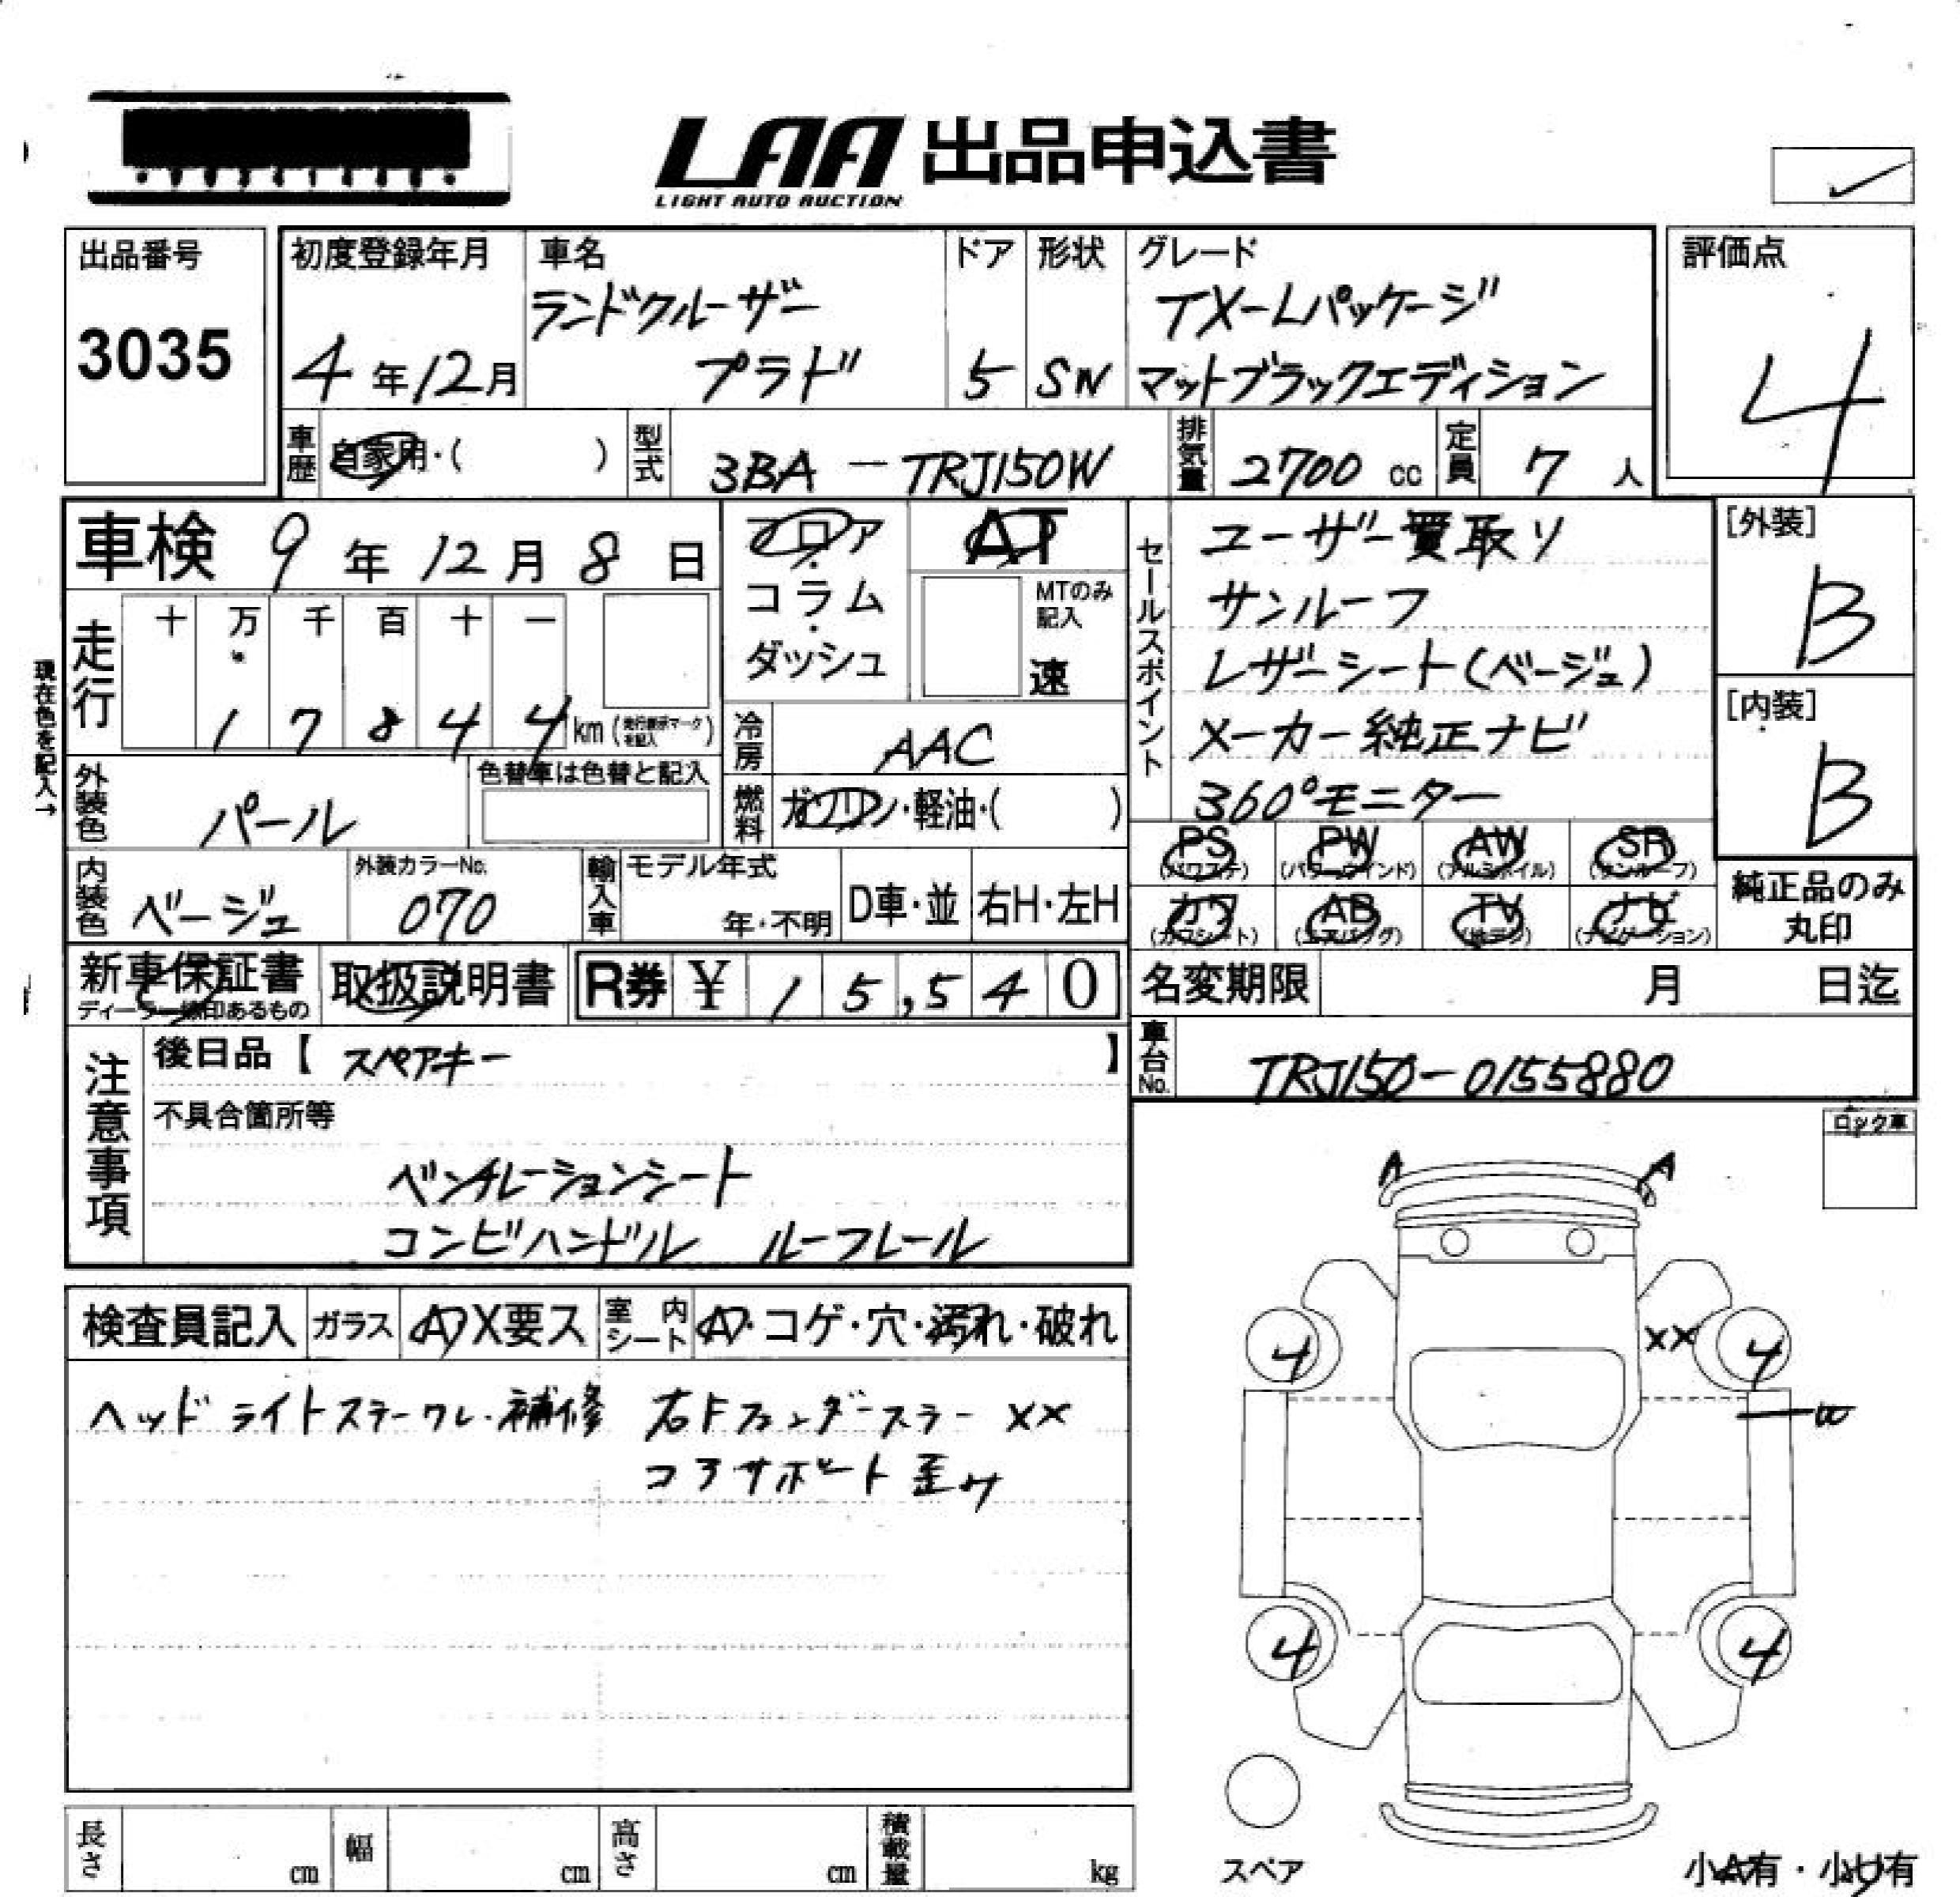 LAA 出品申込書
LIGHT AUTO AUCTION
出品番号
3035
初度登録年月
4年12月
車名
ランドクルーザー
プラド
ドア
5
形状
SW
グレード
TX-Lパッケージ
マットブラックエディション
評価点
4
車歴 自家用・( )
型式 3BA-TRJ150W
排気量 2700 cc
定員 7人
車検 9年12月8日
フロア・
コラム・
ダッシュ
AT
MTのみ記入
速
走行
十 万 千 百 十 一
1 7 8 4 4 km
現在色を記入→
冷房 AAC
燃料 ガソリン・軽油・( )
外装色 パール
色替車は色替と記入
内装色 ベージュ
外装カラーNo.
070
輸入車
モデル年式
年・不明
D車・並
右H・左H
セールスポイント
ユーザー買取り
サンルーフ
レザーシート(ベージュ)
メーカー純正ナビ
360°モニター
[外装]
B
[内装]
B
PS (パワステ)
PW (パワーウインド)
AW (アルミホイル)
SR (サンルーフ)
カワ (カワシート)
AB (エアバッグ)
TV (地デジ)
ナビ (ナビゲーション)
純正品のみ
丸印
新車保証書
取扱説明書
R券 ¥15,540
名変期限 月 日迄
車台No. TRJ150-0155880
注意事項
後日品【スペアキー】
不具合箇所等
ベンチレーションシート
コンビハンドル ルーフレール
ロック車
A A
検査員記入
ガラス A・X要ス
室内シート A・コゲ・穴・汚れ・破れ
ヘッドライトステークレ・補修 右Fフェンダーステー XX
コアサポート歪み
XX
4 4
4 4
長さ cm
幅 cm
高さ cm
積載量 kg
スペア
小A有・小U有